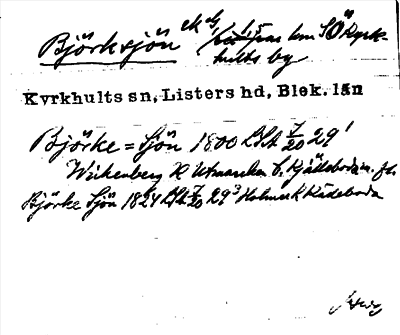 Björksjön ek G, 1,5 km SÖ Kyrk-
hults by
Kyrkhults sn, Listers hd, Blek. län
Björke=Sjön 1800 LSA 7/20 29¹
Wickenberg K Utmarken t. Kjällaboda m. fl.
Björke Sjön 1824 LSA 7/20 29³ Holmer K Kädeboda